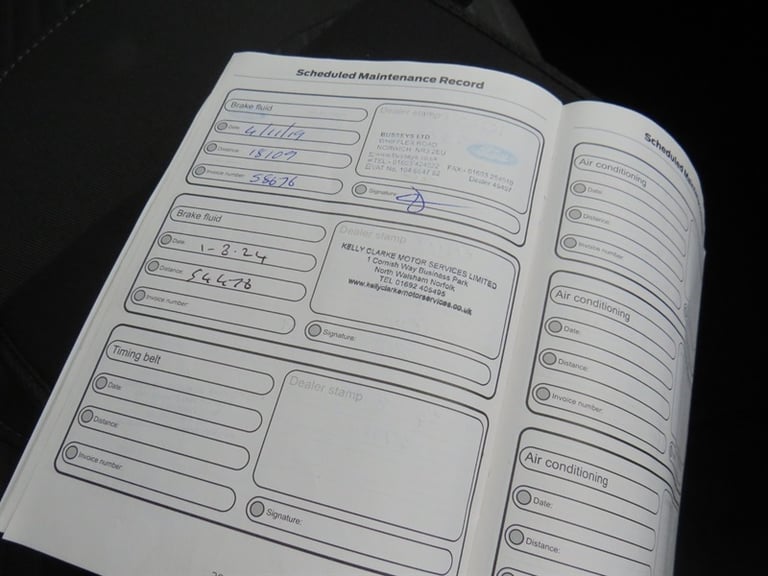 Scheduled Maintenance Record
Brake fluid
Date: 4/11/19
Distance: 18109
Invoice number: 58676
Dealer stamp
BUSSEYS LTD
WHIFFLER ROAD
NORWICH, NR3 2EU
www.busseys.co.uk
Ford
Signature:
Brake fluid
Date: 1-8.24
Distance: 54478
Invoice number:
Dealer stamp
KELLY CLARKE MOTOR SERVICES LIMITED
1 Cornish Way Business Park
North Walsham Norfolk
TEL 01692 406495
www.kellyclarkemotorservices.co.uk
Signature:
Timing belt
Date:
Distance:
Invoice number:
Dealer stamp
Signature:
Scheduled
Air conditioning
Date:
Distance:
Invoice number:
Air conditioning
Date:
Distance:
Invoice number:
Air conditioning
Date:
Distance: